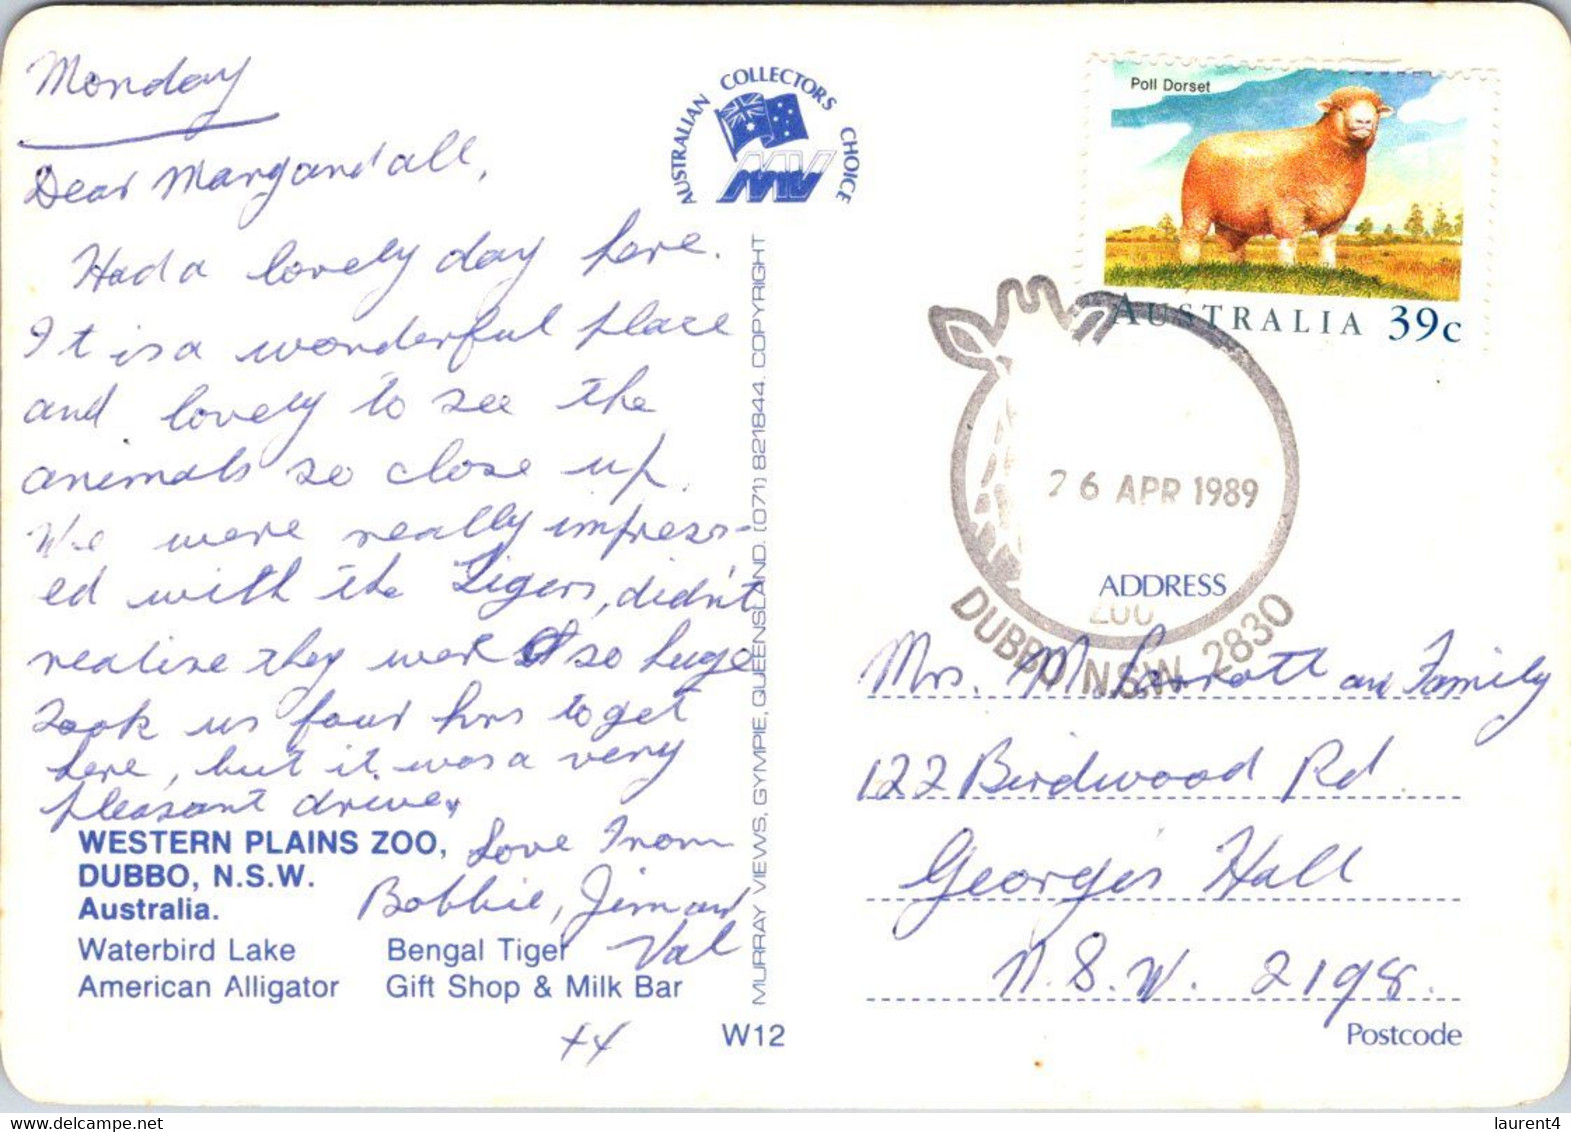 Monday
Dear Marg and all,
Had a lovely day here.
It is a wonderful place
and lovely to see the
animals so close up.
We were really impress-
ed with the Tigers, didn't
realise they were so huge
Took us four hrs to get
here, but it was a very
pleasant drive.
Love From
Bobbie, Jim and
Val
xx
WESTERN PLAINS ZOO,
DUBBO, N.S.W.
Australia.
Waterbird Lake Bengal Tiger
American Alligator Gift Shop & Milk Bar
W12
AUSTRALIAN COLLECTORS CHOICE
MV
MURRAY VIEWS, GYMPIE, QUEENSLAND. (071) 821844. COPYRIGHT
Poll Dorset
AUSTRALIA 39c
26 APR 1989
ZOO
DUBBO N.S.W. 2830
ADDRESS
Mrs. M and Family
122 Birdwood Rd
Georges Hall
N.S.W. 2198.
Postcode
laurent4